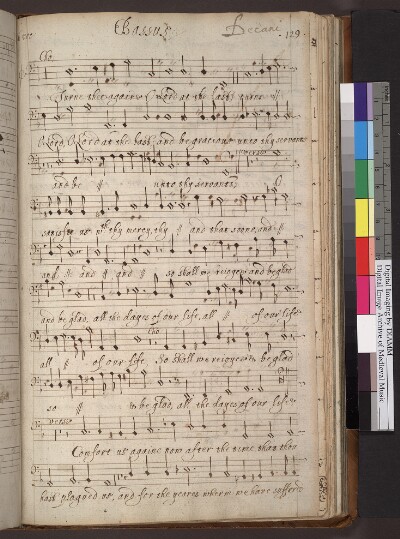 Bassus Decani 129
Cho
Turne thee againe O Lord at the last, turne
O Lord, O Lord at the last, and be gracious unto thy servants
and be unto thy servants O
satisfie us wth thy mercy, thy and that soone, and
and and and so shall we reioyce and be glad
and be glad, all the dayes of our life, all of our life
all of our life So shall we reioyce & be glad
Cho
so & be glad, all the dayes of our life
verse
Comfort us againe now after the time that thou
hast plagued us, and for the yeares wherein we have suffered
Digital Imaging by DIAMM
Digital Image Archive of Medieval Music